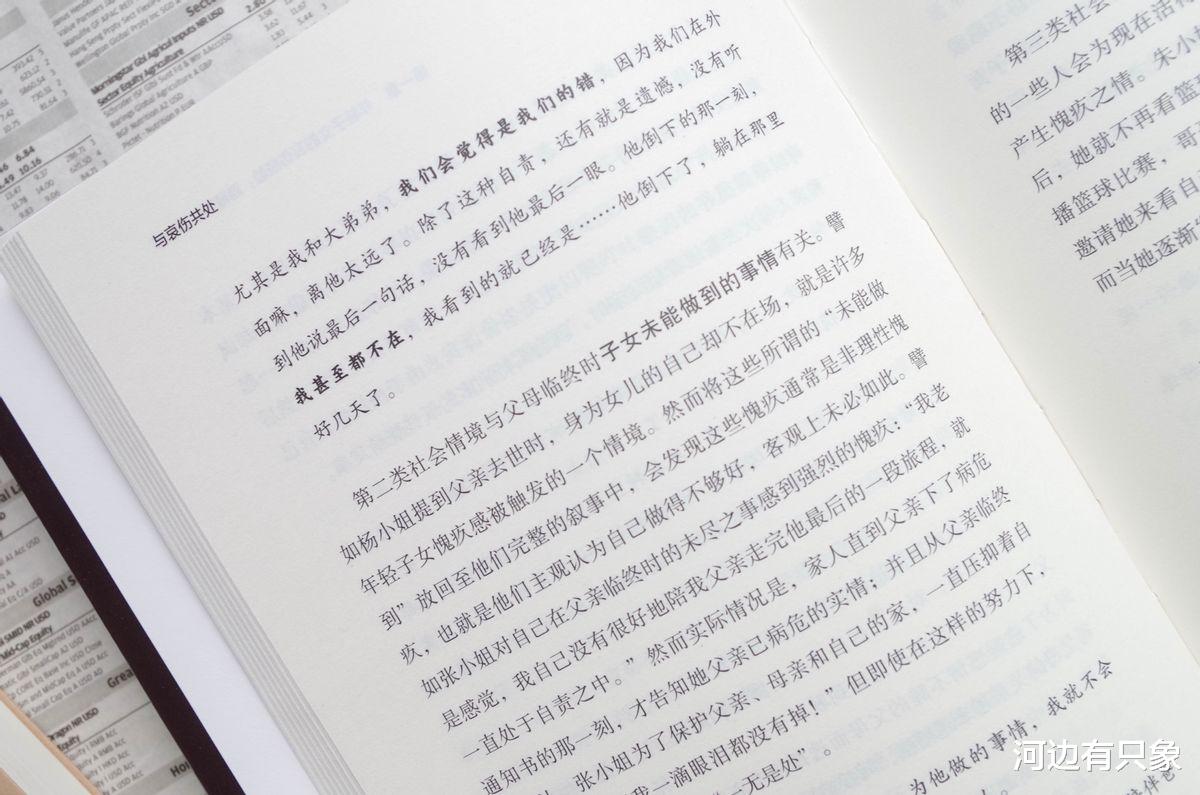 与哀伤共处
尤其是我和大弟弟，我们会觉得是我们的错，因为我们在外
面嘛，离他太远了。除了这种自责，还有就是遗憾，没有听
到他说最后一句话，没有看到他最后一眼。他倒下的那一刻，
我甚至都不在，我看到的就已经是……他倒下了，躺在那里
好几天了。
第二类社会情境与父母临终时子女未能做到的事情有关。譬
如杨小姐提到父亲去世时，身为女儿的自己却不在场，就是许多
年轻子女愧疚感被触发的一个情境。然而将这些所谓的“未能做
到”放回至他们完整的叙事中，会发现这些愧疚通常是非理性愧
疚，也就是他们主观认为自己做得不够好，客观上未必如此。譬
如张小姐对自己在父亲临终时的未尽之事感到强烈的愧疚：“我老
是感觉，我自己没有很好地陪我父亲走完他最后的一段旅程，就
一直处于自责之中。”然而实际情况是，家人直到父亲下了病危
通知书的那一刻，才告知她父亲已病危的实情；并且从父亲临终
张小姐为了保护父亲、母亲和自己的家，一直压抑着自
我一滴眼泪都没有掉！”但即使在这样的努力下，
一无是处”。
为他做的事情，我就不会
第三类社会
的一些人会为现在活
产生愧疚之情。朱小
后，她就不再看篮
播篮球比赛，哥
邀请她来看自
而当她逐渐
Morningstar Gbl Agricul Inputs NR USD
Sector Equity Agriculture
河边有只象